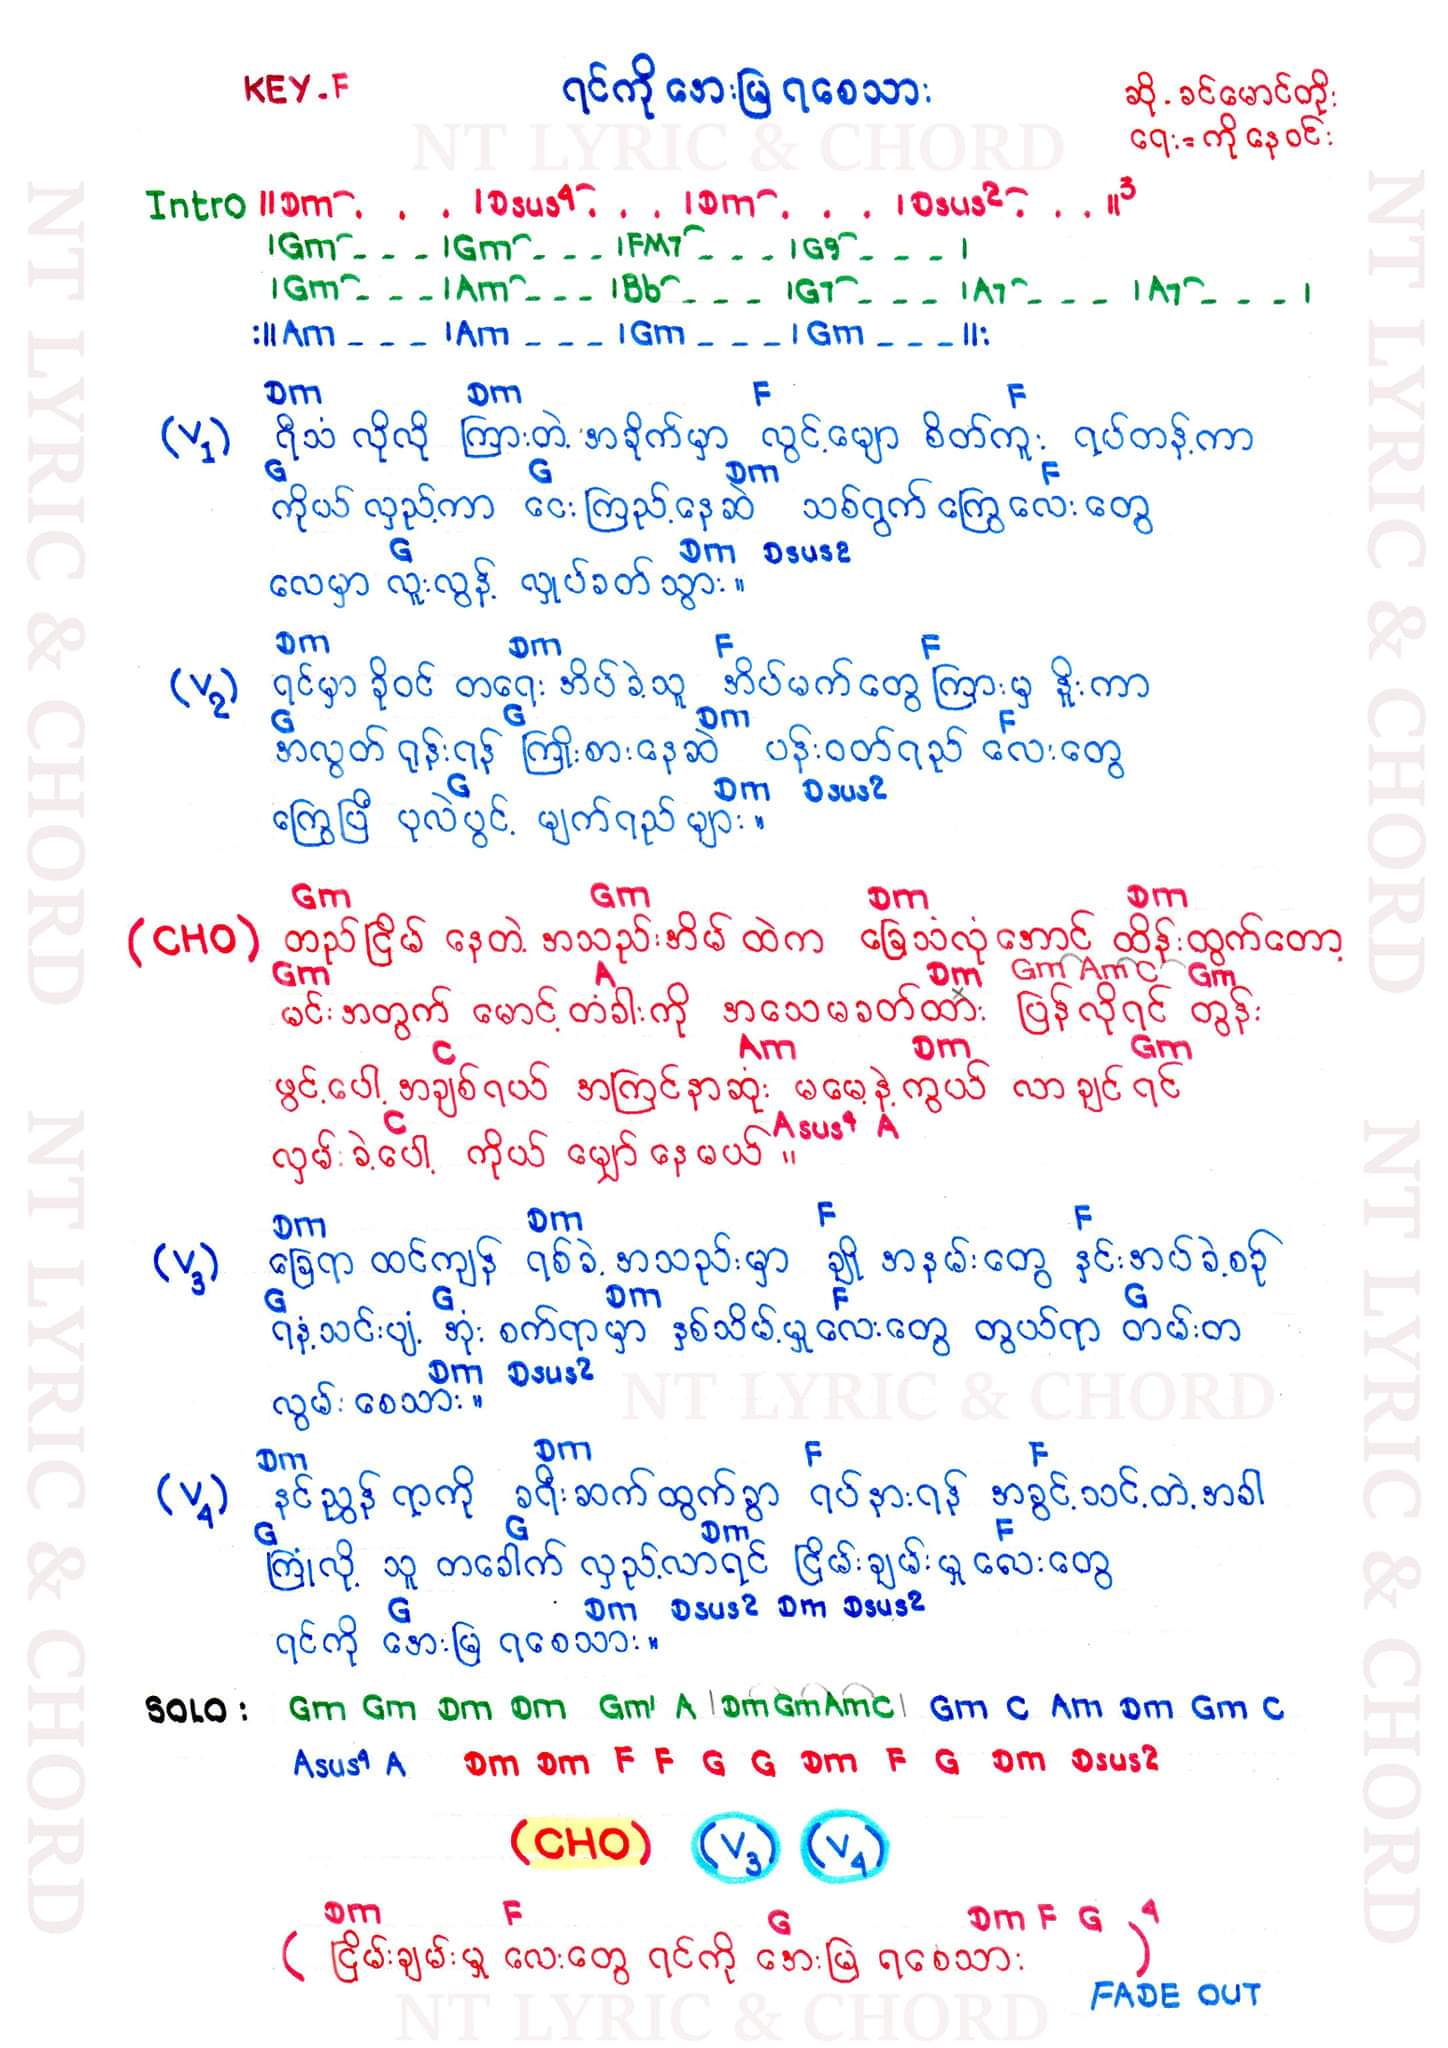 KEY-F
ရင်ကိုအေးမြရစေသား
ဆို-ခင်မောင်တိုး
ရေး=ကိုနေဝင်း
NT LYRIC & CHORD
Intro ||Dm . . . |Dsus4 . . . |Dm . . . |Dsus2 . . . ||3
|Gm - - - |Gm - - - |FM7 - - - |G9 - - - |
|Gm - - - |Am - - - |Bb - - - |G7 - - - |A7 - - - |A7 - - - |
:||Am - - - |Am - - - |Gm - - - |Gm - - - ||:
Dm Dm F F
(V1) ရီသံ လိုလို ကြားတဲ့ အခိုက်မှာ လွင့်မျော စိတ်ကူး ရပ်တန့်ကာ
G G Dm F
ကိုယ် လှည့်ကာ ငေးကြည့်နေဆဲ သစ်ရွက်ကြွေလေးတွေ
G Dm Dsus2
လေမှာ လူးလွန့် လှုပ်ခတ်သွား။
Dm Dm F F
(V2) ရင်မှာ ခိုဝင် တရေး အိပ်ခဲ့သူ အိပ်မက်တွေ ကြားမှ နိုးကာ
G G Dm F
အလွတ် ရုန်းရန် ကြိုးစားနေဆဲ ပန်းဝတ်ရည် လေးတွေ
G Dm Dsus2
ကြွေပြီ ပုလဲပွင့် မျက်ရည်များ။
Gm Gm Dm Dm
(CHO) တည်ငြိမ် နေတဲ့ အသည်းအိမ် ထဲက ခြေသံလုံအောင် ထိန်းထွက်တော့
Gm A Dm Gm Am C Gm
မင်းအတွက် မောင့်တံခါးကို အသေမခတ်ထား ပြန်လိုရင် တွန်း
C Am Dm Gm
ဖွင့်ပေါ့ အချစ်ရယ် အကြင်နာဆုံး မမေ့နဲ့ကွယ် လာချင်ရင်
C Asus4 A
လှမ်းခဲ့ပေါ့ ကိုယ် မျှော်နေမယ်။
Dm Dm F F
(V3) ခြေရာ ထင်ကျန် ရစ်ခဲ့ အသည်းမှာ ချို အနမ်းတွေ နှင်းအပ်ခဲ့စဉ်
G G Dm F G
ရနံ့သင်းပျံ့ အုံး စက်ရာမှာ နှစ်သိမ့်မှုလေးတွေ တွယ်ရာ တမ်းတ
Dm Dsus2
လွမ်းစေသား။
NT LYRIC & CHORD
Dm Dm F F
(V4) နင်ညွှန်ရာကို ခရီးဆက်ထွက်ခွာ ရပ်နားရန် အခွင့်သင့်တဲ့အခါ
G G Dm F
ကြုံလို့ သူ တခေါက် လှည့်လာရင် ငြိမ်းချမ်းမှု လေးတွေ
G Dm Dsus2 Dm Dsus2
ရင်ကို အေးမြ ရစေသား။
SOLO: Gm Gm Dm Dm Gm A |Dm Gm Am C| Gm C Am Dm Gm C
Asus4 A Dm Dm F F G G Dm F G Dm Dsus2
(CHO) (V3) (V4)
Dm F G Dm F G
( ငြိမ်းချမ်းမှု လေးတွေ ရင်ကို အေးမြ ရစေသား )4
FADE OUT
NT LYRIC & CHORD
NT LYRIC & CHORD NT LYRIC & CHORD
NT LYRIC & CHORD NT LYRIC & CHORD